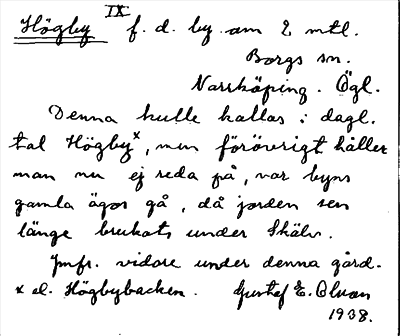 Högby IX f. d. by om 2 mtl.
Borgs sn.
Norrköping. Ögl.
Denna kulle kallas i dagl.
tal Högbyˣ, men förövrigt håller
man nu ej reda på, var byns
gamla ägor gå, då jorden sen
länge brukats under Skälv.
Jmfr. vidare under denna gård.
x el. Högbybacken. Gustaf E. Olsson
1938.